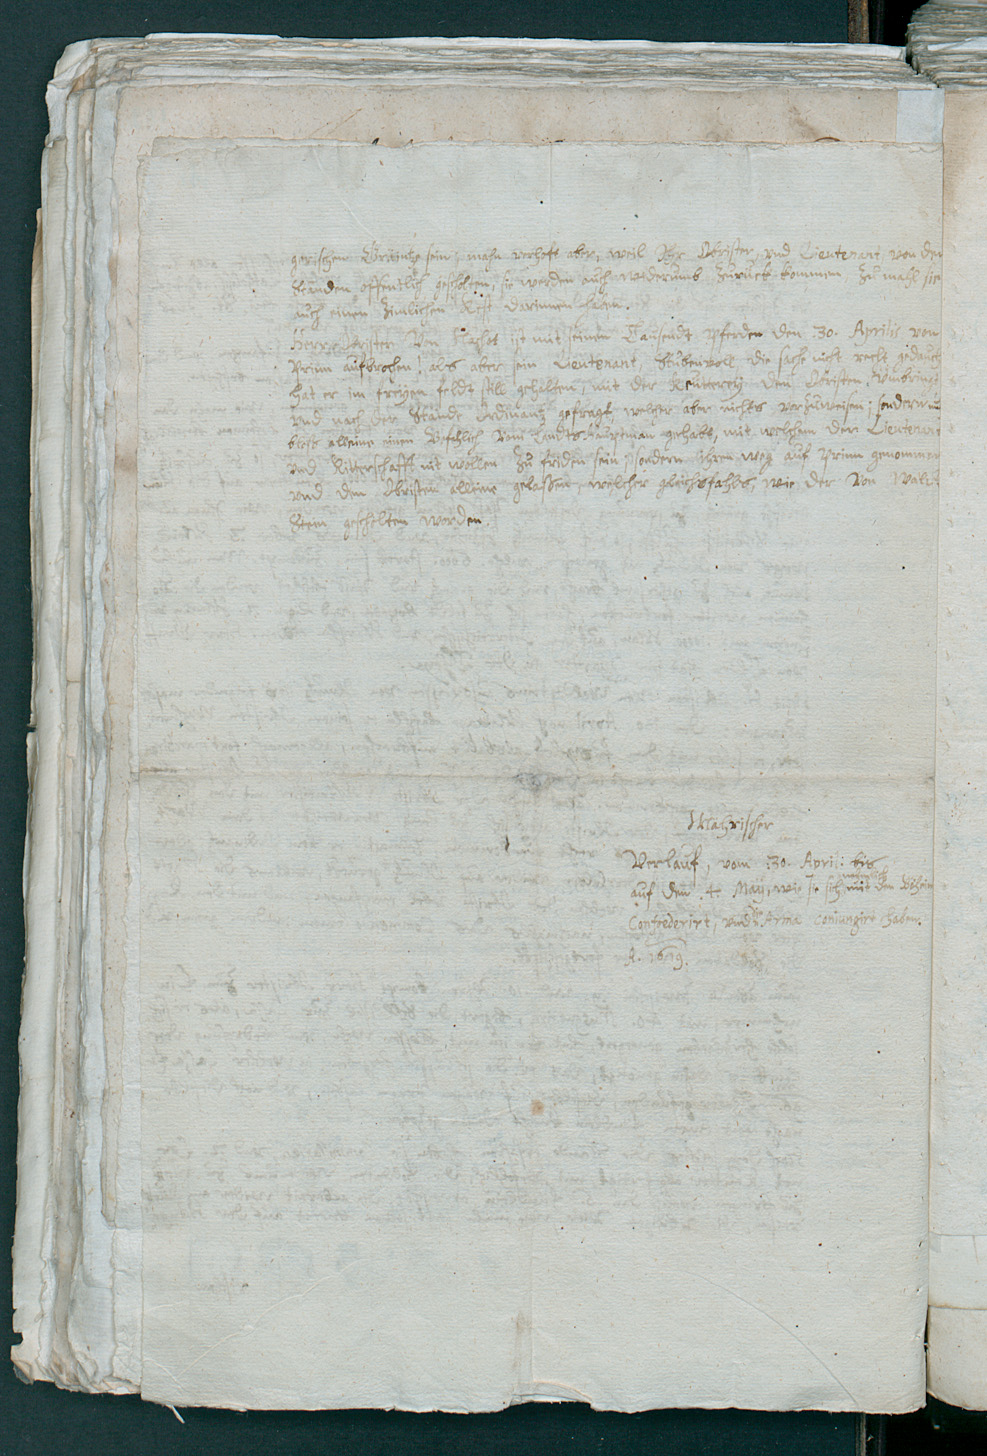 gerischen Gräntze sein, man verhoft aber, weil Ihr Obrister, vnd Lieutenant von den
Ständen offentlich gescholten, sie werden auch widerumb zuruck kommen, zu mahl sie
auch einen zimlichen Rest darinnen haben.
Herr Obrister Von Nachot ist mit seinen Tausendt Pferden den 30. Aprilis von
Prinn aufbrochen, als aber sein Lieutenant, Stubenvoll die sach nicht recht gedaucht
hat er im freyen feldt still gehalten, mit der Reutterey den Obristen, vmbringt
vnd nach der Stände Ordinantz gefragt, welcher aber nichts vorzuweisen, sondern nur
bloß alleine einen Befehlich vom Landtshauptman gehabt, mit welchem der Lieutenant
vnd Ritterschafft nit wollen zu friden sein, sondern ihren weg auf Prinn genommen
vnd den Obristen alleine gelaßen, welcher gleichsfahls, wie der Von Waldt
stein gescholten worden.
Mahrischer
Verlauf, vom 30. April: bis
auf den 4. May, wie sie sich mit den Böhem
Confoederirt, vnd Arma coniungirt haben.
A. 1619.